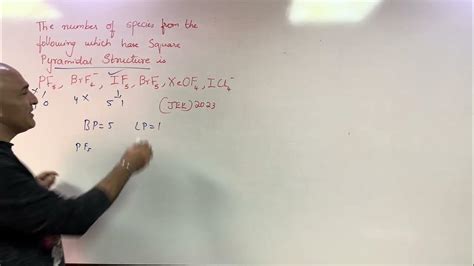 The number of species from the
following which have Square
Pyramidal Structure is
PF₅, BrF₄⁻, IF₅, BrF₅, XeOF₄, ICl₄⁻
0 4 × 5 1
(JEE) 2023
BP=5 LP=1
PF₅